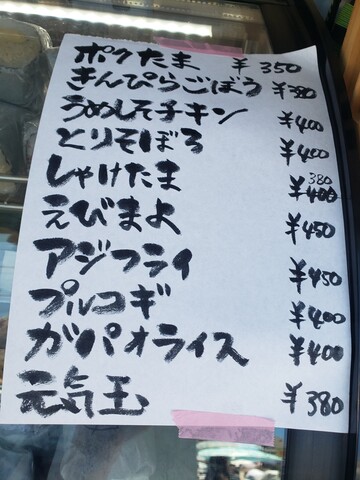 ポクたま ¥350
きんぴらごぼう ¥380
うめしそチキン ¥400
とりそぼろ ¥400
しゃけたま 380 ¥400
えびまよ ¥450
アジフライ ¥450
プルコギ ¥400
ガパオライス ¥400
元気玉 ¥380